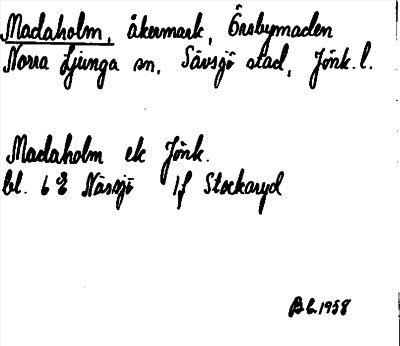 Madaholm, åkermark, Örsbymaden
Norra Ljunga sn, Sävsjö stad, Jönk. l.
Madaholm ek Jönk.
bl. 6 E Nässjö 1f Stockaryd
B.L. 1958